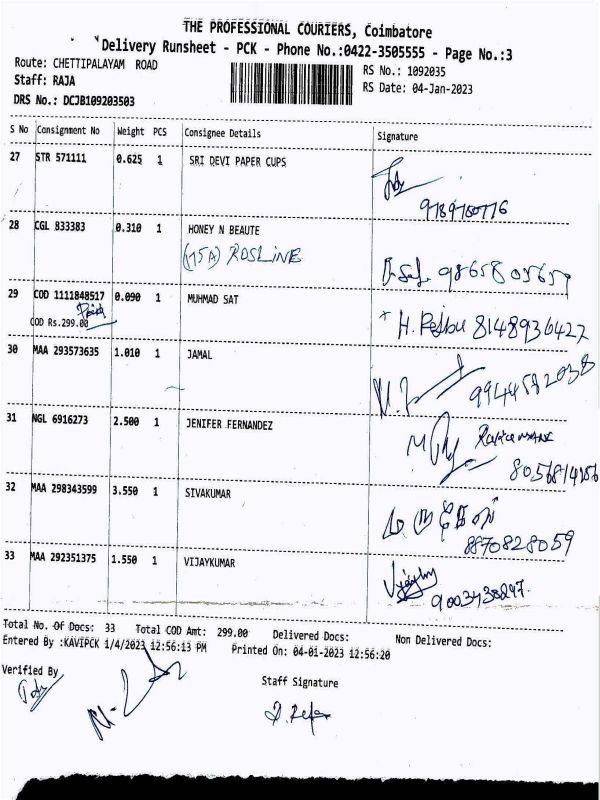 THE PROFESSIONAL COURIERS, Coimbatore
Delivery Runsheet - PCK - Phone No.:0422-3505555 - Page No.:3
Route: CHETTIPALAYAM ROAD
RS No.: 1092035
Staff: RAJA
RS Date: 04-Jan-2023
DRS No.: DCJB109203503
S No Consignment No Weight PCS Consignee Details Signature
27 STR 571111 0.625 1 SRI DEVI PAPER CUPS
28 CGL 833383 0.310 1 HONEY N BEAUTE
(M5A) ROSLINE
9865803657
29 COD 1111848517 0.090 1 MUHMAD SAT
Paid
COD Rs.299.00
8148936427
30 MAA 293573635 1.010 1 JAMAL
9944582038
31 NGL 6916273 2.500 1 JENIFER FERNANDEZ
32 MAA 298343599 3.550 1 SIVAKUMAR
8870828059
33 MAA 292351375 1.550 1 VIJAYKUMAR
Total No. Of Docs: 33 Total COD Amt: 299.00 Delivered Docs: Non Delivered Docs:
Entered By :KAVIPCK 1/4/2023 12:56:13 PM Printed On: 04-01-2023 12:56:20
Verified By
Staff Signature